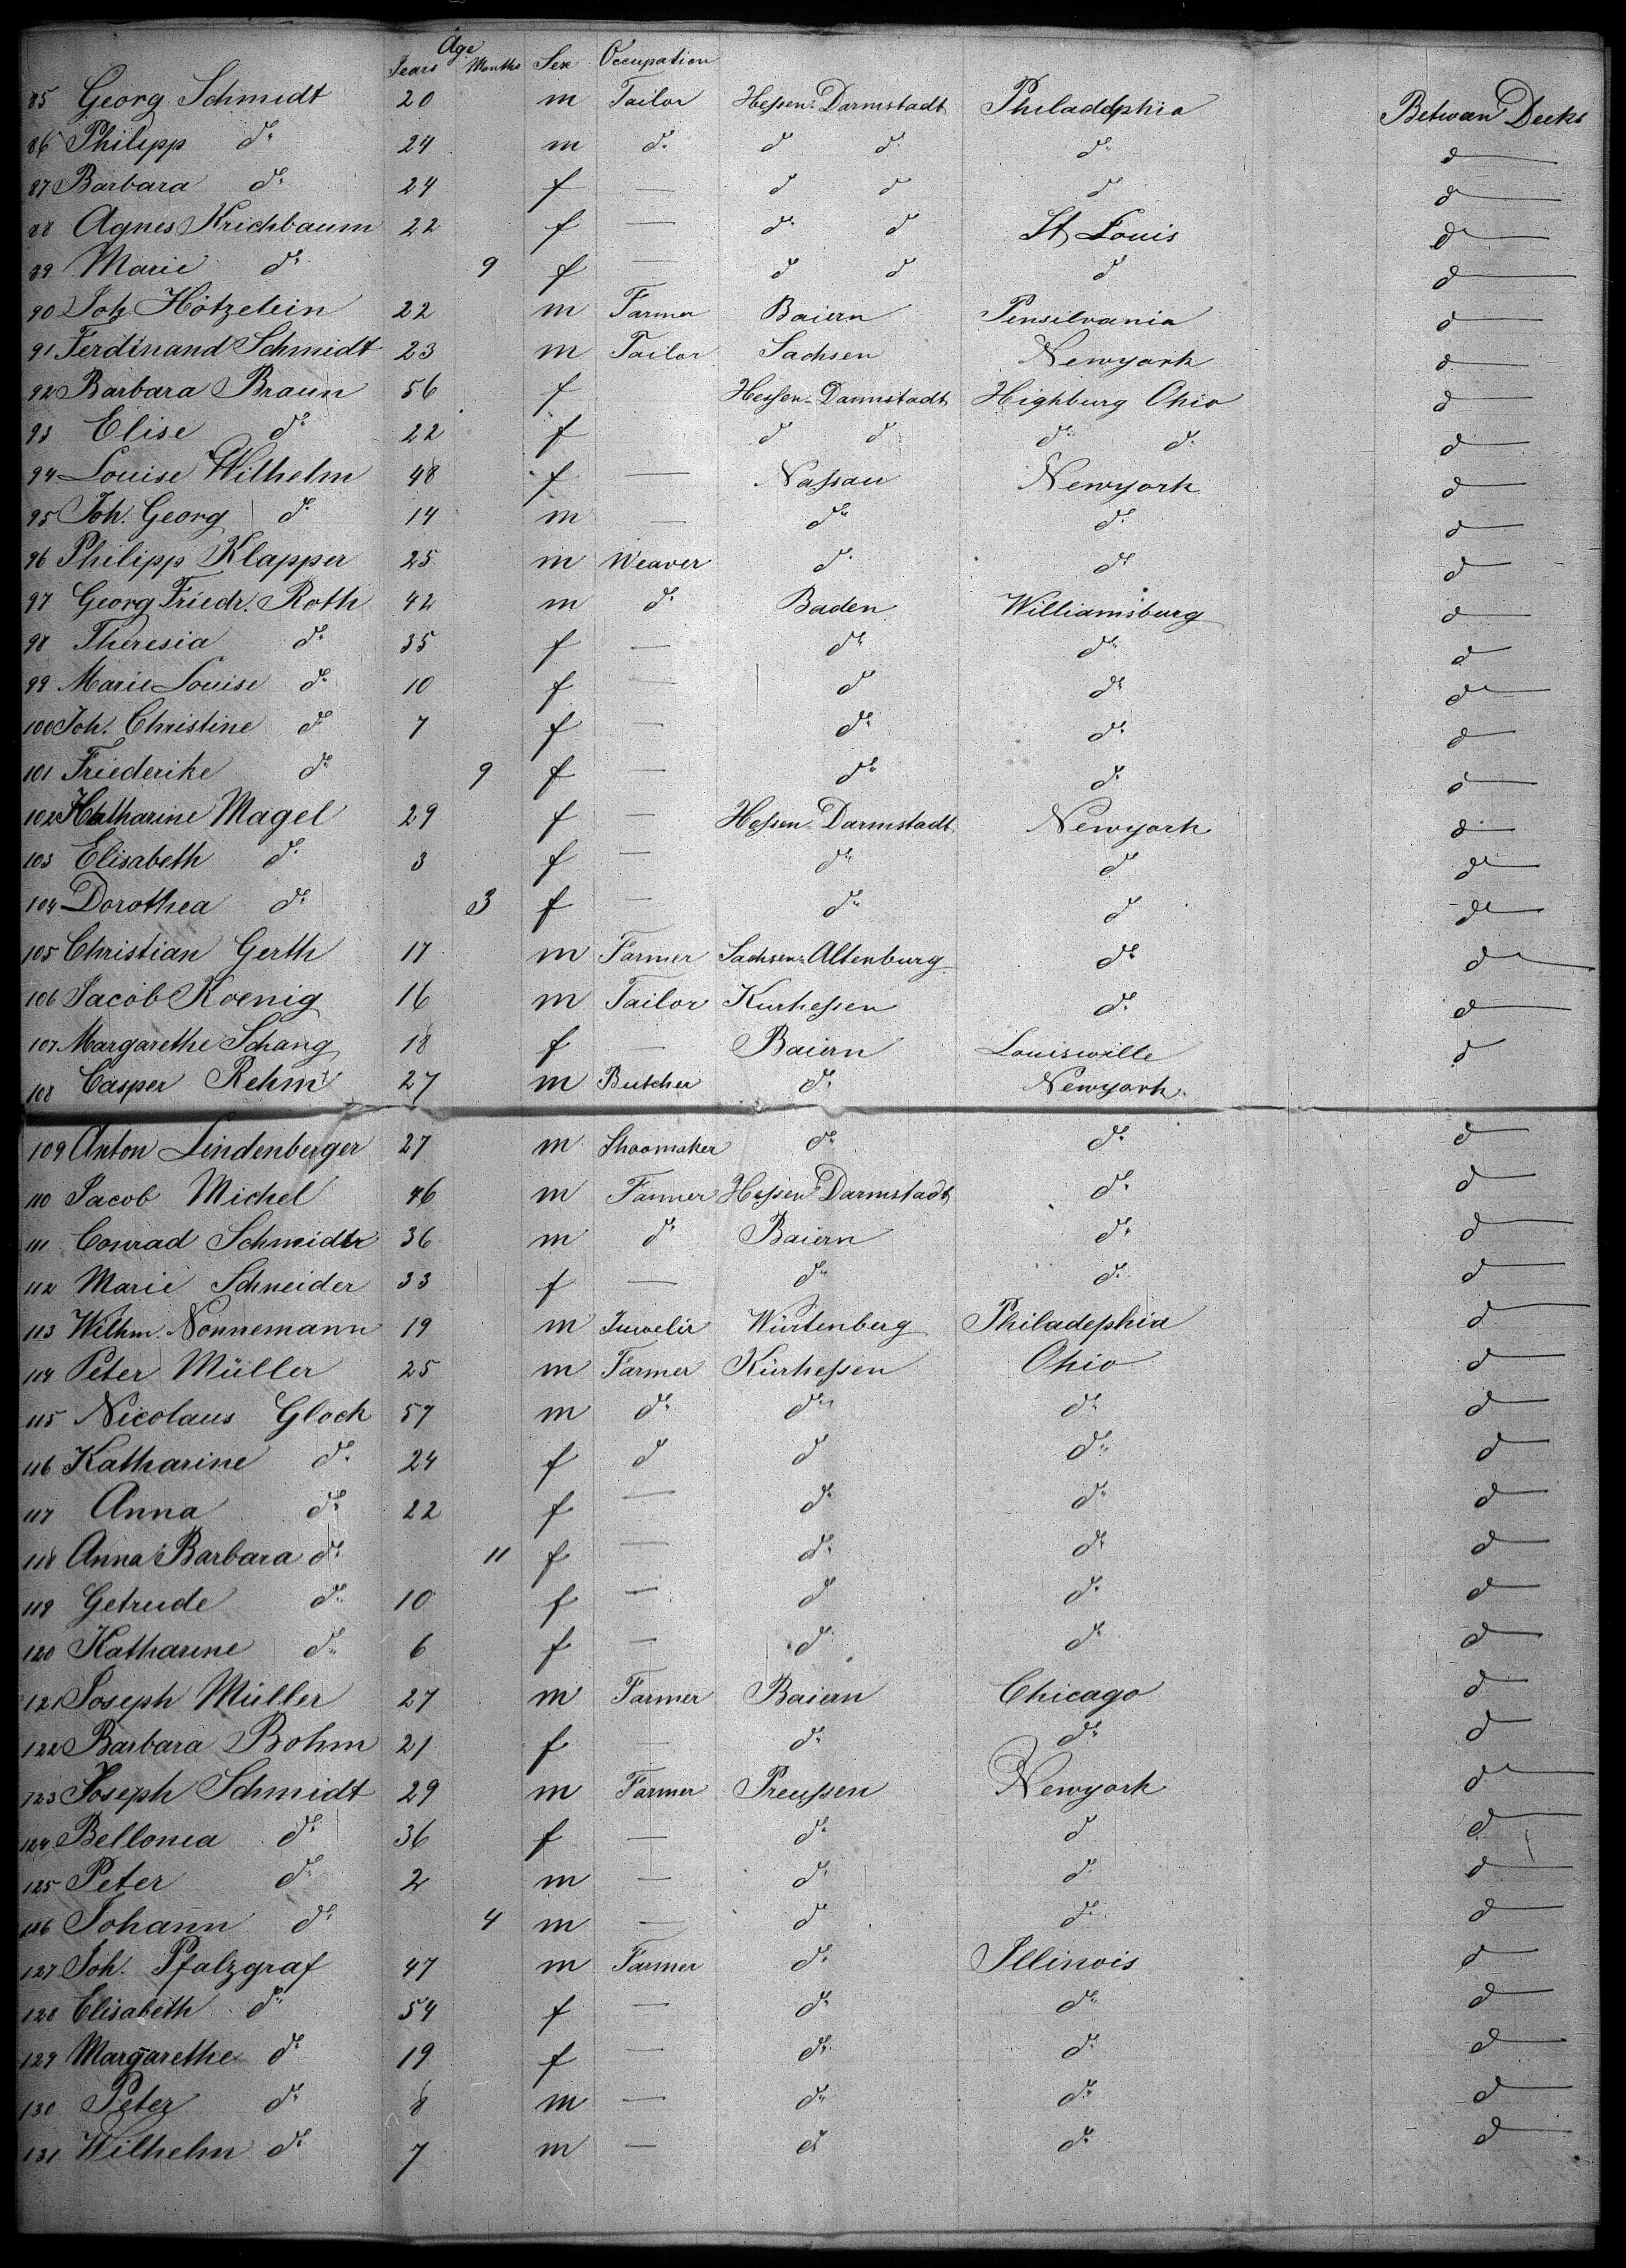 Age
Years Months Sex Occupation
85 Georg Schmidt 20 m Tailor Hessen-Darmstadt Philadelphia Betwan Decks
86 Philipp do 24 m do do do do do
87 Barbara do 24 f — do do do do
88 Agnes Krichbaum 22 f — do do St Louis do
89 Marie do 9 f — do do do do
90 Joh Hötzelein 22 m Farmer Baiern Pensilvania do
91 Ferdinand Schmidt 23 m Tailor Sachsen Newyork do
92 Barbara Braun 56 f Hessen-Darmstadt Highburg Ohio do
93 Elise do 22 f do do do do do
94 Louise Wilhelm 48 f — Nassau Newyork do
95 Joh. Georg do 14 m — do do do
96 Philipp Klapper 25 m Weaver do do do
97 Georg Friedr. Roth 42 m do Baden Williamsburg do
98 Theresia do 35 f — do do do
99 Marie Louise do 10 f — do do do
100 Joh. Christine do 7 f — do do do
101 Friederike do 9 f — do do do
102 Katharine Magel 29 f — Hessen-Darmstadt Newyork do
103 Elisabeth do 3 f — do do do
104 Dorothea do 3 f — do do do
105 Christian Gerth 17 m Farmer Sachsen-Altenburg do do
106 Jacob Koenig 16 m Tailor Kurhessen do do
107 Margarethe Schang 18 f — Baiern Louisville do
108 Casper Rehm 27 m Butcher do Newyork
109 Anton Lindenberger 27 m Shoomaker do do do
110 Jacob Michel 46 m Farmer Hessen Darmstadt do do
111 Conrad Schmidtr 36 m do Baiern do do
112 Marie Schneider 33 f — do do do
113 Wilhm. Nonnemann 19 m Juvelir Würtenberg Philadephia do
114 Peter Müller 25 m Farmer Kürhessen Ohio do
115 Nicolaus Gloch 57 m do do do do
116 Katharine do 24 f do do do do
117 Anna do 22 f — do do do
118 Anna Barbara do 11 f — do do do
119 Getrude do 10 f — do do do
120 Katharine do 6 f — do do do
121 Joseph Müller 27 m Farmer Baiern Chicago do
122 Barbara Bohm 21 f — do do do
123 Joseph Schmidt 29 m Farmer Preussen Newyork do
124 Bellonia do 36 f — do do do
125 Peter do 2 m — do do do
126 Johann do 4 m — do do do
127 Joh. Pfalzgraf 47 m Farmer do Illinois do
128 Elisabeth do 54 f — do do do
129 Margarethe do 19 f — do do do
130 Peter do 8 m — do do do
131 Wilhelm do 7 m — do do do